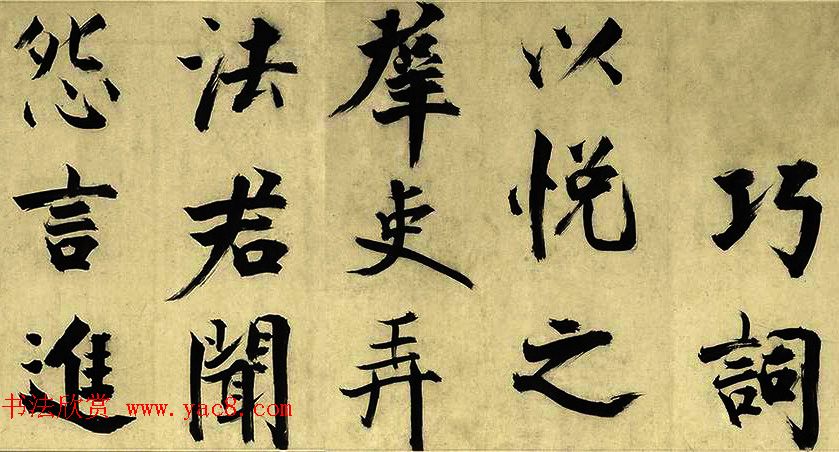 巧詞
以悅之
羣吏弄
法君聞
怨言進
书法欣赏 www.yac8.com